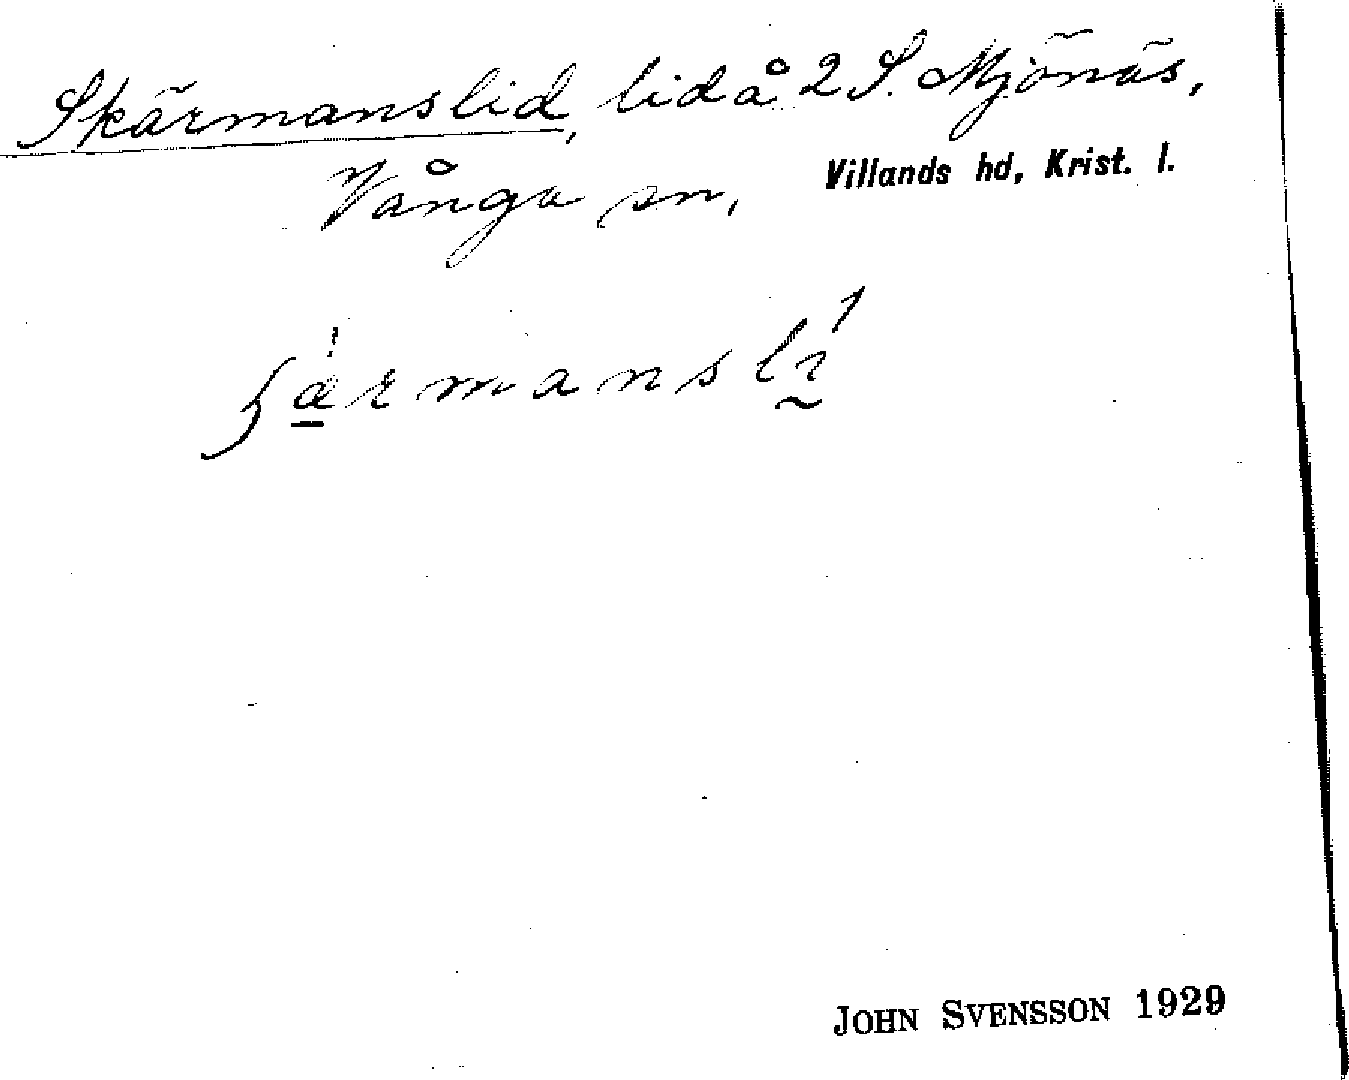 Skärmanslid, lid å 2 S. Mjönäs,
Vånga sn, Villands hd, Krist. l.
ʂärmanslí
JOHN SVENSSON 1929